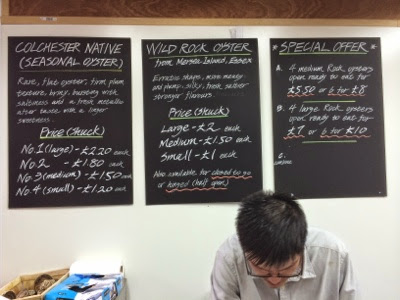 COLCHESTER NATIVE
(SEASONAL OYSTER)
Rare, flat oyster, firm plum
texture, briny, bursting with
saltiness and a fresh metallic
after taste, with a linger
sweetness.
Price (Shuck)
No.1 (large) - £2.20 each
No.2 - £1.80 each
No.3 (medium) - £1.50 each
No.4 (small) - £1.20 each
WILD ROCK OYSTER
from Mersea Island, Essex
Erratic shape, more meaty
and plump, silky, fresh, saltier
stronger flavours.
Price (Shuck)
Large - £2 each
Medium - £1.50 each
Small - £1 each
Also available for closed to go
or boxed (half open)
* SPECIAL OFFER *
A: 4 medium Rock oysters
open ready to eat for
£5.50 or 6 for £8
B: 4 large Rock oysters
open ready to eat for
£7 or 6 for £10
C: